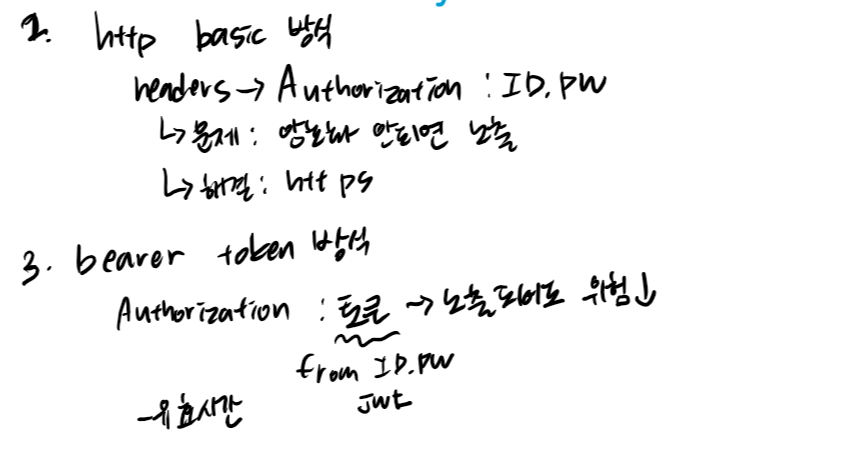 2. http basic 방식
headers → Authorization : ID.PW
↳ 문제 : 암호화 안되면 노출
↳ 해결 : https
3. bearer token 방식
Authorization : 토큰 → 노출되어도 위험↓
from ID.PW
-유효시간 jwt